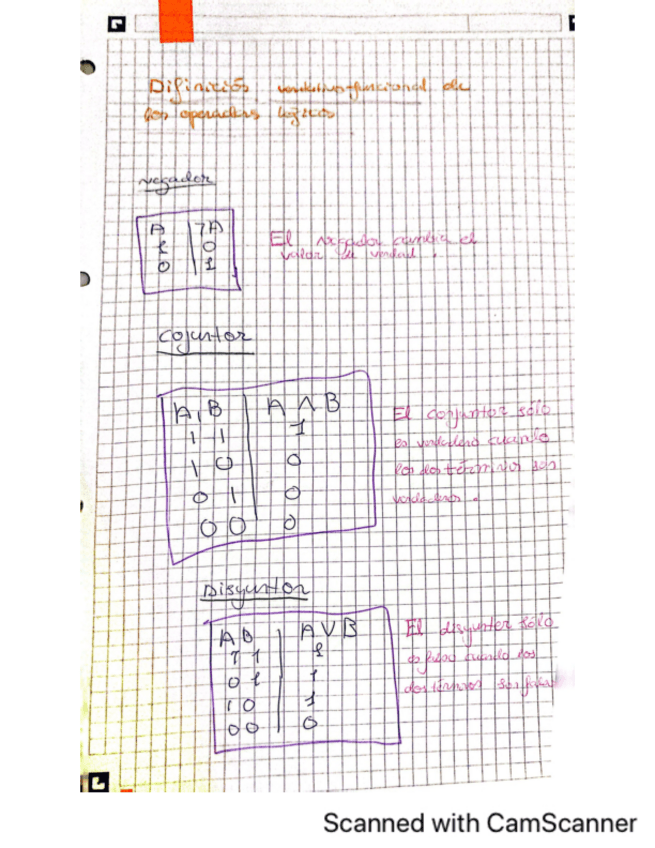 Difinición veritativo-funcional de
los operadores lógicos
negador
A | ¬A
1 | 0
0 | 1
El negador cambia el
valor de verdad.
Cojuntor
A, B | A ∧ B
1 1 | 1
1 0 | 0
0 1 | 0
0 0 | 0
El conjuntor sólo
es verdadero cuando
los dos términos son
verdaderos.
Disyuntor
A B | A V B
1 1 | 1
0 1 | 1
1 0 | 1
0 0 | 0
El disyuntor sólo
es falso cuando los
dos términos son falsos
Scanned with CamScanner